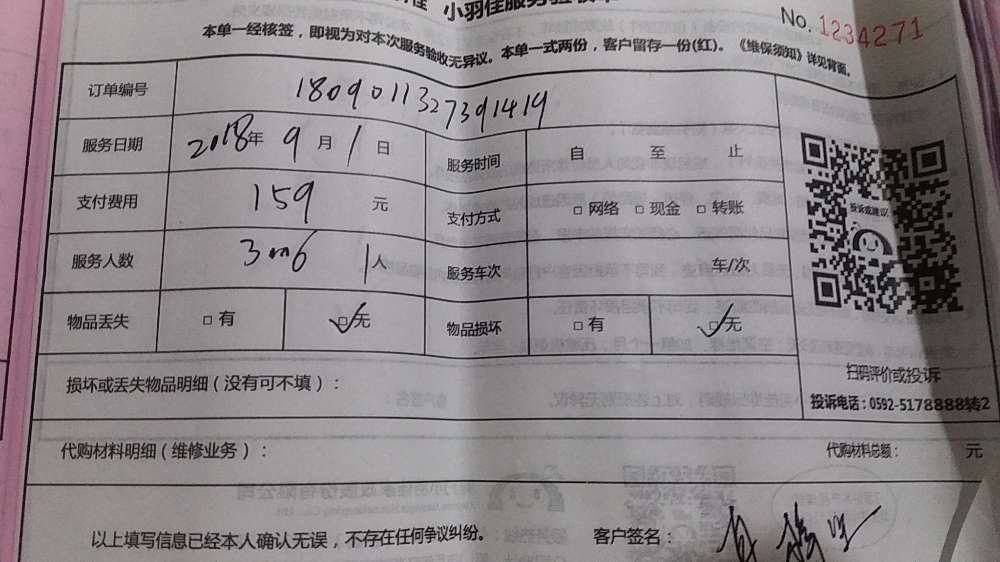 小羽佳服务验收单
No. 1234271
本单一经核签，即视为对本次服务验收无异议。本单一式两份，客户留存一份(红)。《维保须知》详见背面。
订单编号 180901132739141​9
服务日期 2018年 9月 1日 服务时间 自 至 止
支付费用 159 元 支付方式 □网络 □现金 □转账
服务人数 1人 服务车次 车/次
物品丢失 □有 ☑无 物品损坏 □有 ☑无
投诉或建议
扫码评价或投诉
投诉电话：0592-5178888转2
损坏或丢失物品明细（没有可不填）：
代购材料明细（维修业务）： 代购材料总额： 元
以上填写信息已经本人确认无误，不存在任何争议纠纷。 客户签名：